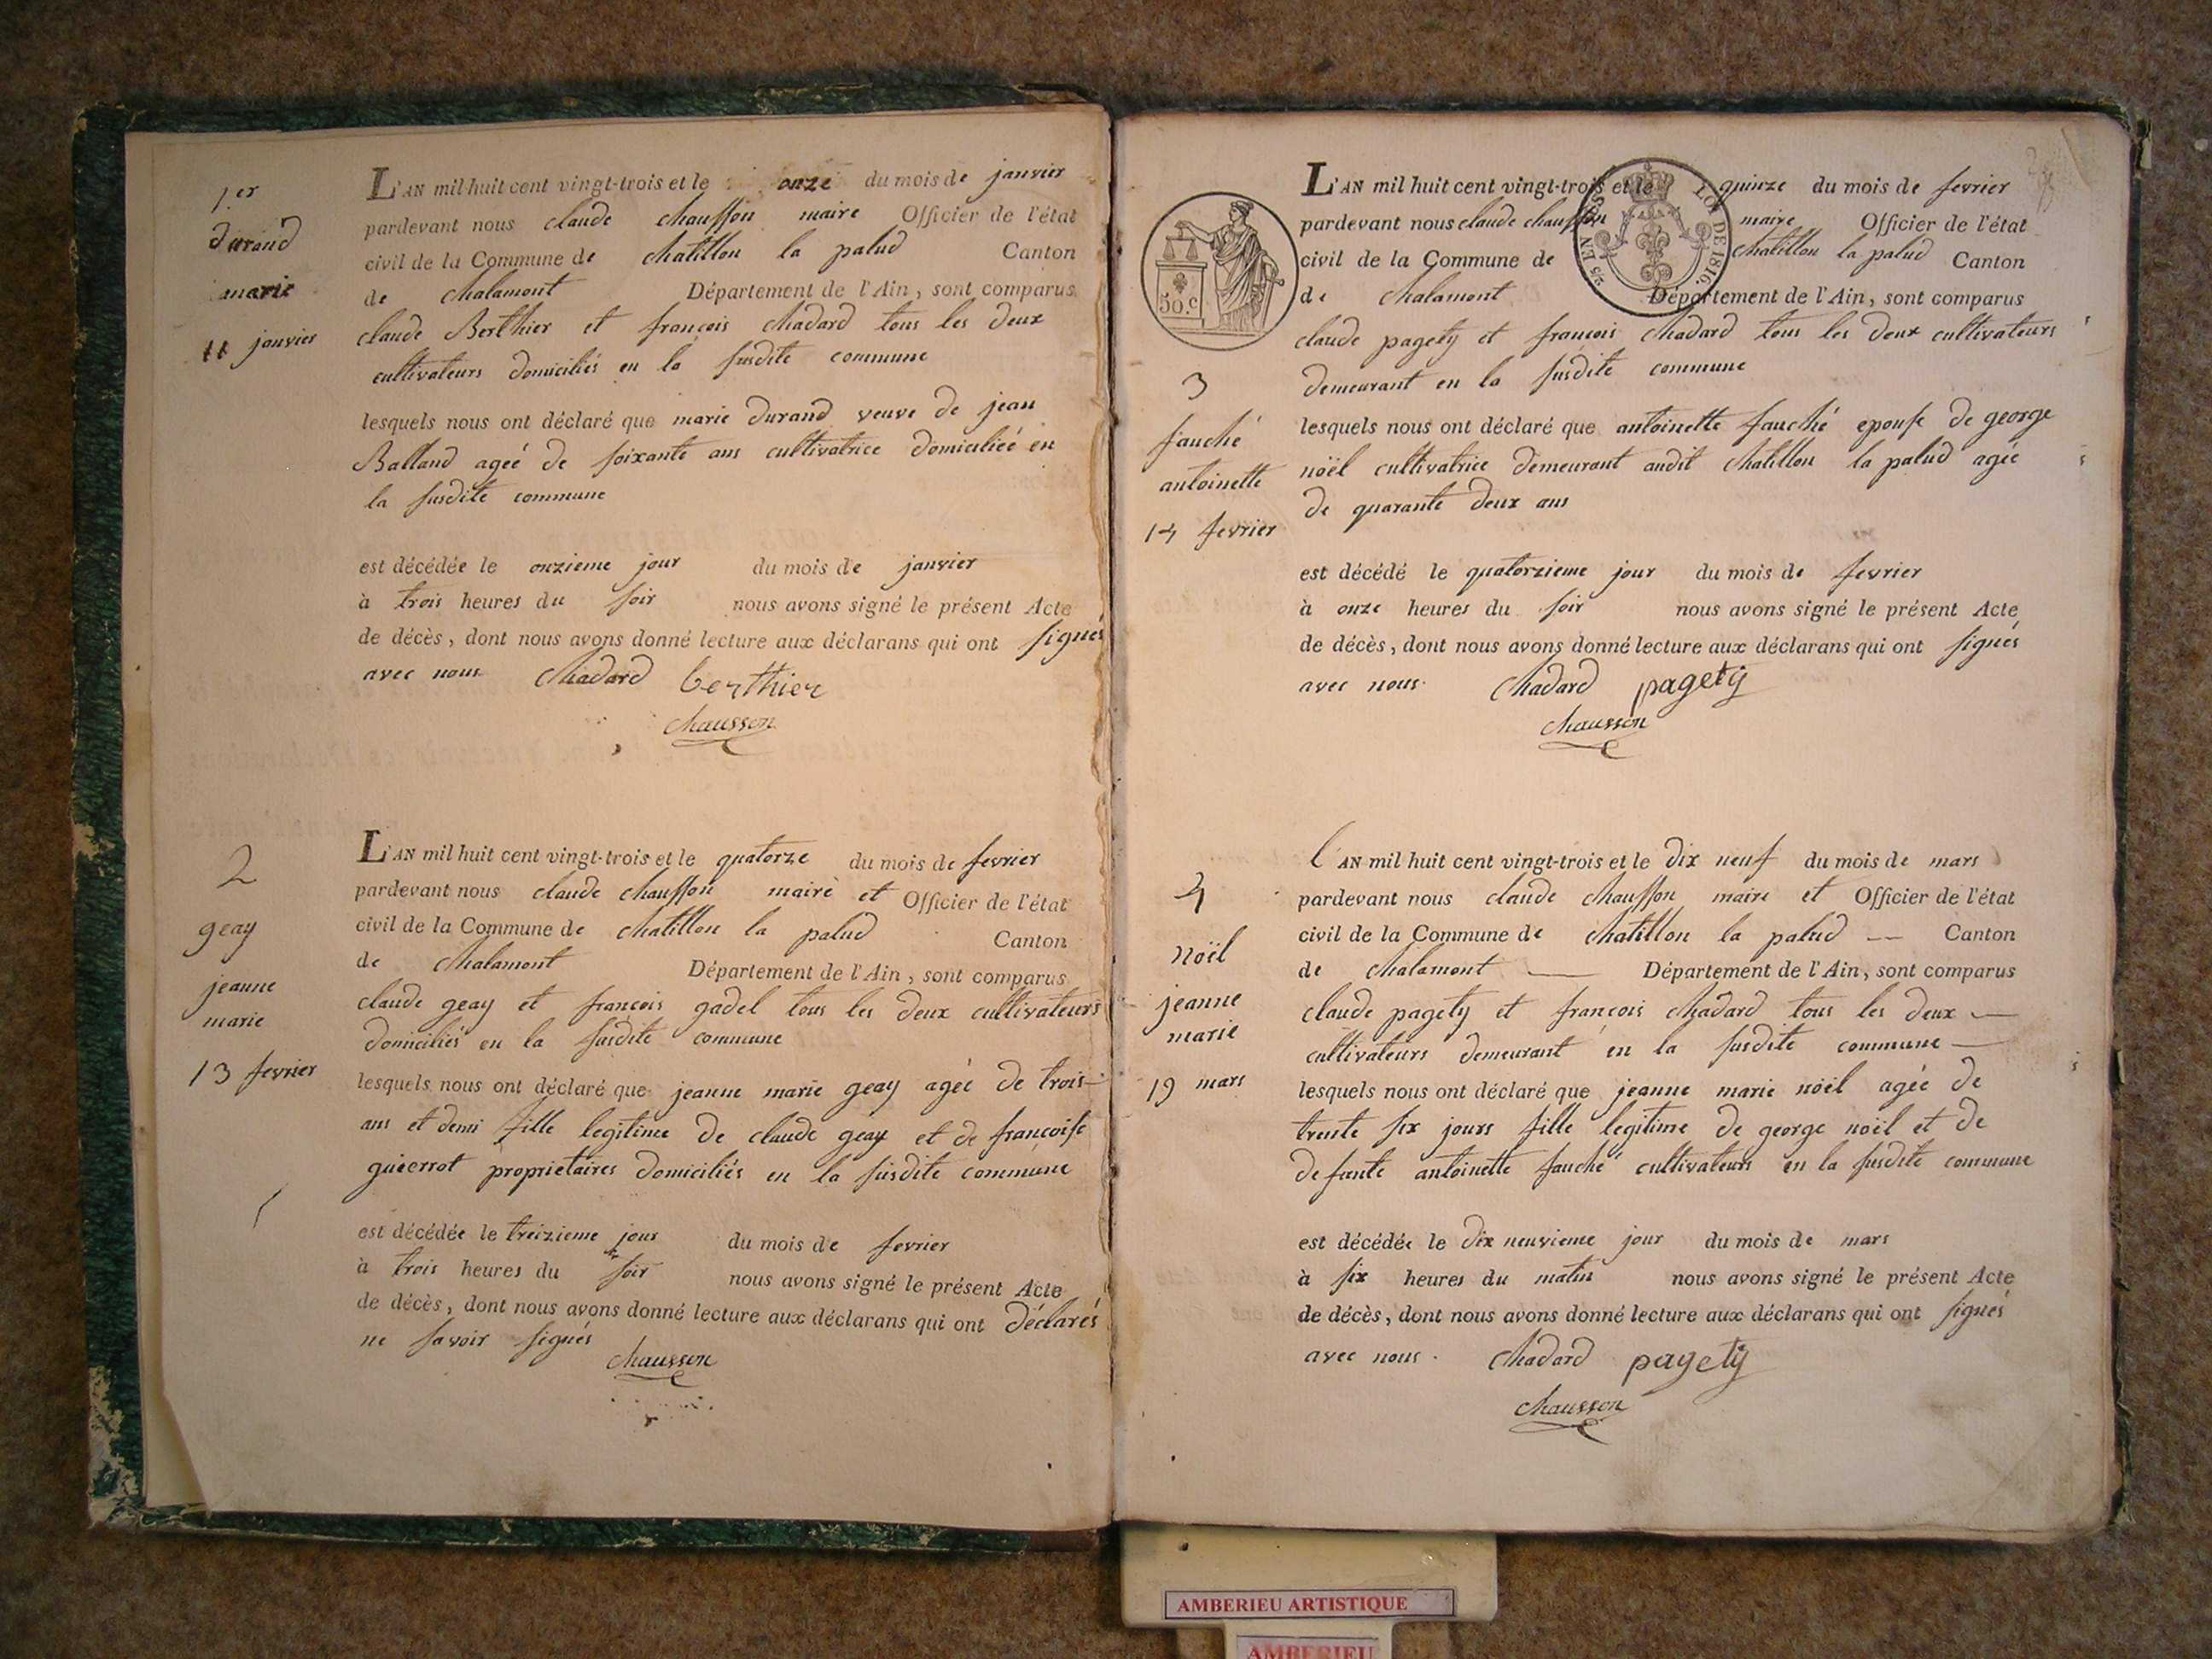 1.er
durand
marie
11 janvier
L'AN mil huit cent vingt-trois et le onze du mois de janvier
pardevant nous claude chausson maire Officier de l'état
civil de la Commune de chatillon la palud Canton
de chalamont Département de l'Ain, sont comparus
claude Berthier et francois chadard tous les deux
cultivateurs domiciliés en la susdite commune
lesquels nous ont déclaré que marie durand veuve de jean
Balland ageé de soixante ans cultivatrice domiciliéé en
la susdite commune
est décédée le onzieme jour du mois de janvier
à trois heures du soir nous avons signé le présent Acte
de décès, dont nous avons donné lecture aux déclarans qui ont signés
avec nous chadard berthier
chausson
2
geay
jeanne
marie
13 fevrier
L'AN mil huit cent vingt-trois et le quatorze du mois de fevrier
pardevant nous claude chausson maire et Officier de l'état
civil de la Commune de chatillon la palud Canton
de chalamont Département de l'Ain, sont comparus
claude geay et francois gadel tous les deux cultivateurs
domiciliés en la susdite commune
lesquels nous ont déclaré que jeanne marie geay agéé de trois
ans et demi fille legitime de claude geay et de francoise
guierrot proprietaires domiciliés en la susdite commune
est décédée le treizieme jour du mois de fevrier
à trois heures du soir nous avons signé le présent Acte
de décès, dont nous avons donné lecture aux déclarans qui ont déclarés
ne savoir signés
chausson
50.c
LOI DE 1816.
3
fauché
antoinette
14 fevrier
L'AN mil huit cent vingt-trois et le quinze du mois de fevrier
pardevant nous claude chausson maire Officier de l'état
civil de la Commune de chatillon la palud Canton
de chalamont Département de l'Ain, sont comparus
claude pagety et francois chadard tous les deux cultivateurs
demeurant en la susdite commune
lesquels nous ont déclaré que antoinette fauché epouse de george
noël cultivatrice demeurant audit chatillon la palud agée
de quarante deux ans
est décédé le quatorzieme jour du mois de fevrier
à onze heures du soir nous avons signé le présent Acte
de décès, dont nous avons donné lecture aux déclarans qui ont signés
avec nous. chadard pagety
chausson
4
noël
jeanne
marie
19 mars
l'AN mil huit cent vingt-trois et le dix neuf du mois de mars
pardevant nous claude chausson maire et Officier de l'état
civil de la Commune de chatillon la palud — Canton
de chalamont — Département de l'Ain, sont comparus
claude pagety et francois chadard tous les deux —
cultivateurs demeurant en la susdite commune —
lesquels nous ont déclaré que jeanne marie nöel agée de
trente six jours fille legitime de george noël et de
defunte antoinette fauché cultivateurs en la susdite commune
est décédée le dix neuvieme jour du mois de mars
à six heures du matin nous avons signé le présent Acte
de décès, dont nous avons donné lecture aux déclarans qui ont signés
avec nous. chadard pagety
chausson
AMBERIEU ARTISTIQUE
AMBERIEU